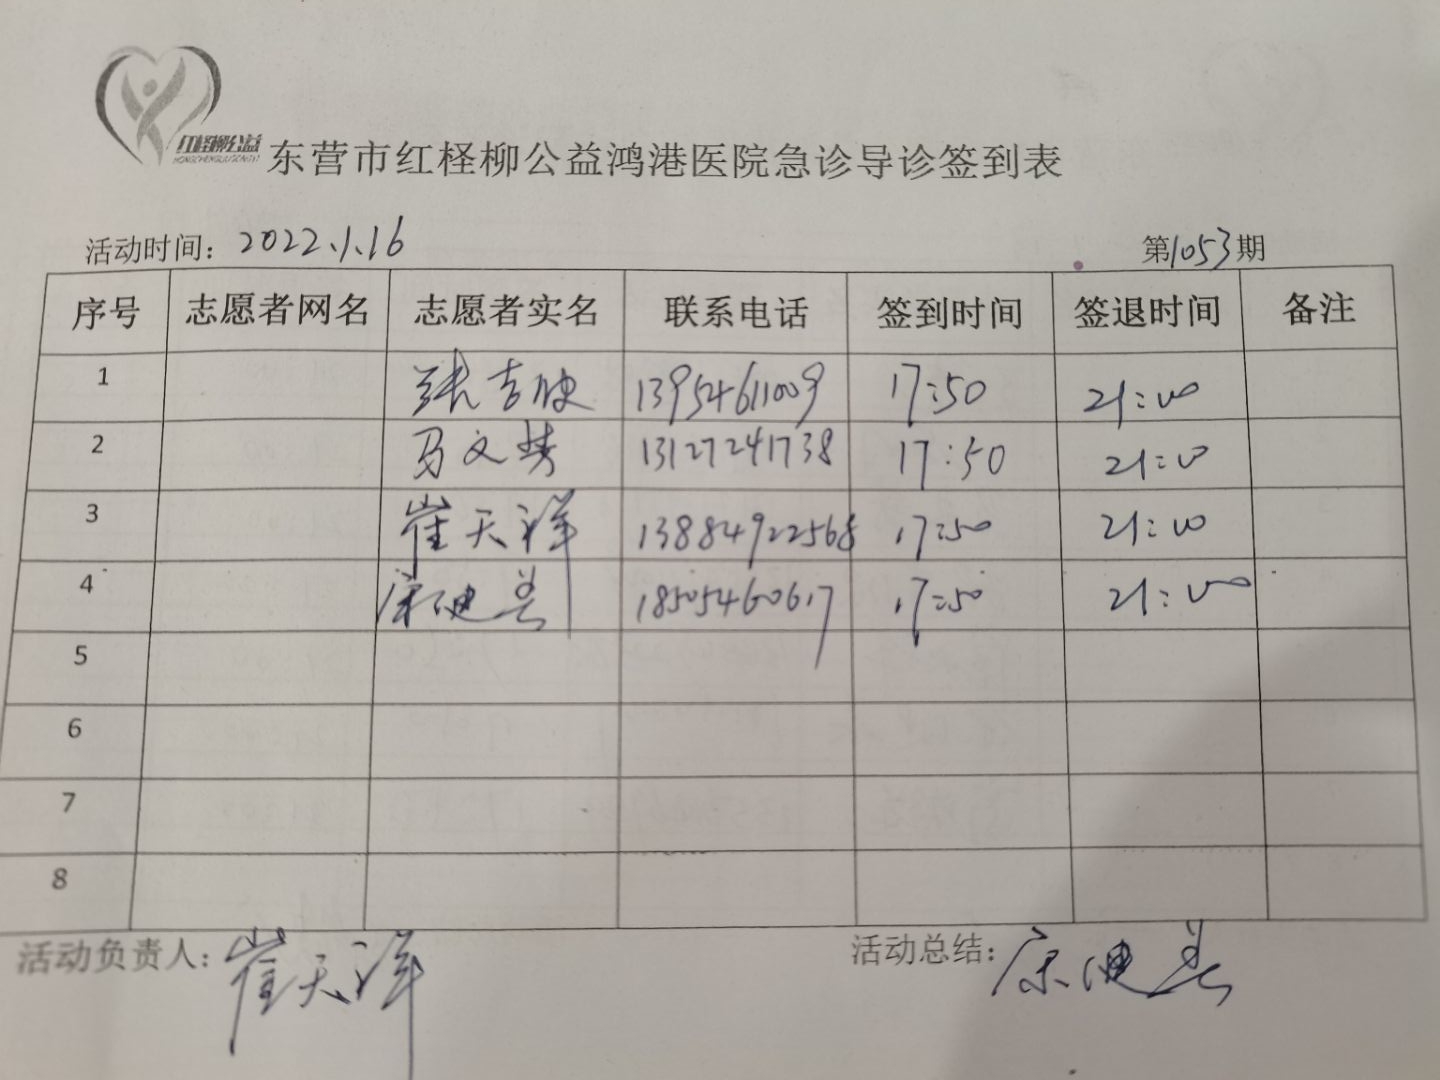 红柽柳公益
东营市红柽柳公益鸿港医院急诊导诊签到表
活动时间：2022.1.16 第1053期
序号 志愿者网名 志愿者实名 联系电话 签到时间 签退时间 备注
1 张吉 13954611009 17:50 21:00
2 马文 13127241738 17:50 21:00
3 崔天祥 13884922568 17:50 21:00
4 康迪美 18505460617 17:50 21:00
5
6
7
8
活动负责人：崔天祥 活动总结：康迪美